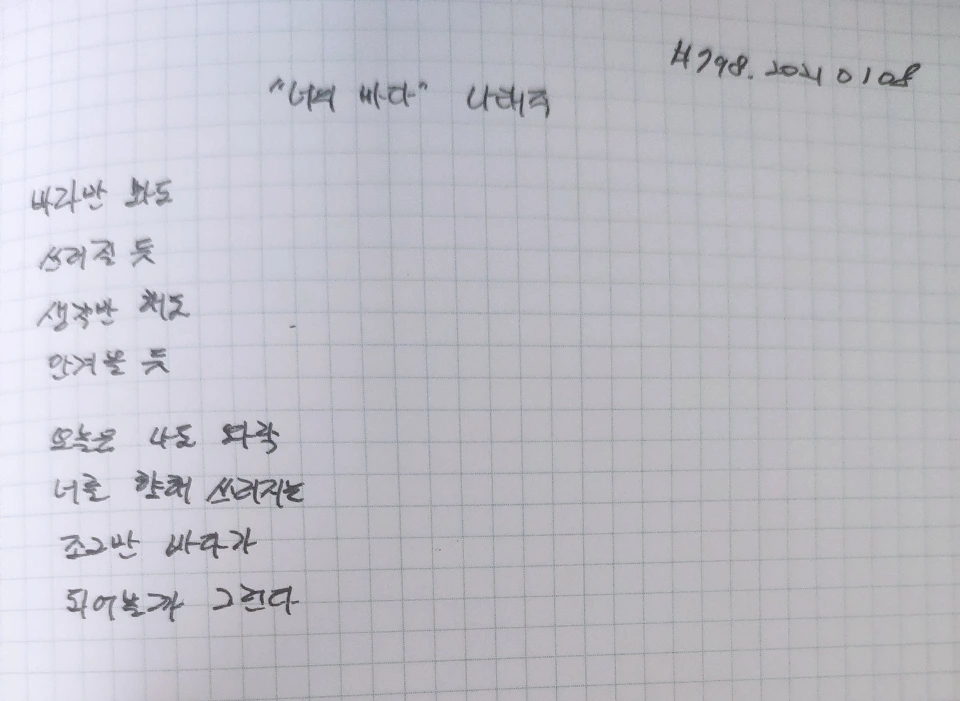 #798. 20210108
"너의 바다" 나태주
바라만 봐도
쓰러질 듯
생각만 해도
안겨올 듯
오늘은 나도 와락
너를 향해 쓰러지는
조그만 바다가
되어볼까 그런다